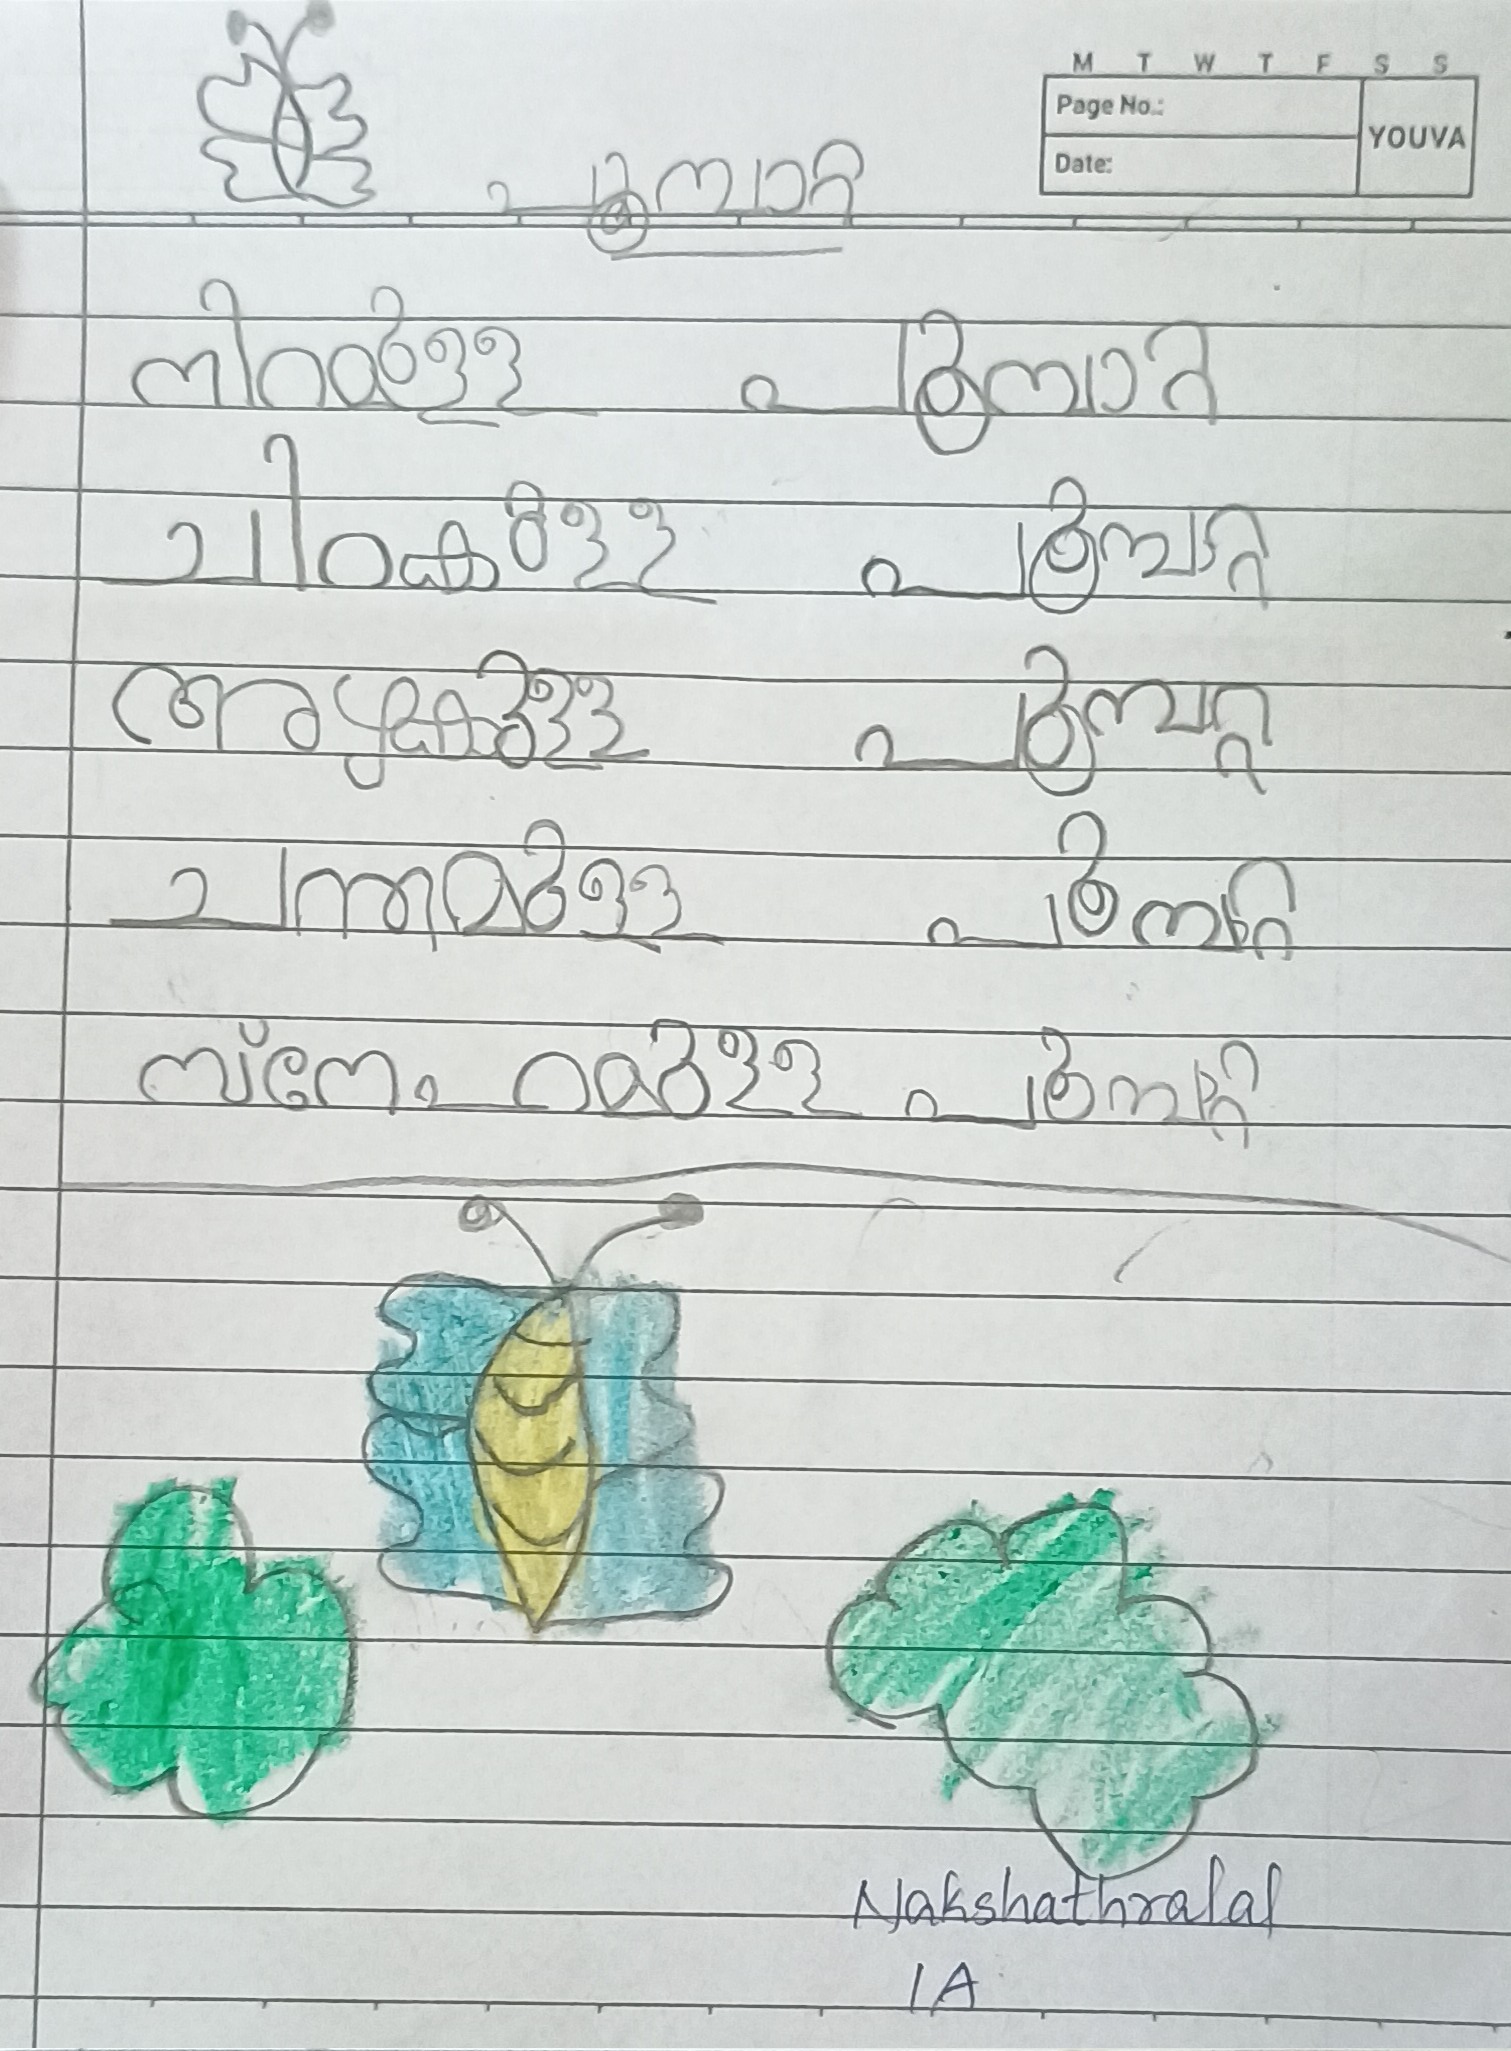 M T W T F S S
Page No.:
YOUVA
Date:
പൂമ്പാറ്റ
നിറമുള്ള പൂമ്പാറ്റ
ചിറകുള്ള പൂമ്പാറ്റ
അഴകുള്ള പൂമ്പറ്റ
ചന്തമുള്ള പൂമ്പാറ്റ
സ്നേഹമുള്ള പൂമ്പാറ്റ
Nakshathralal
1A